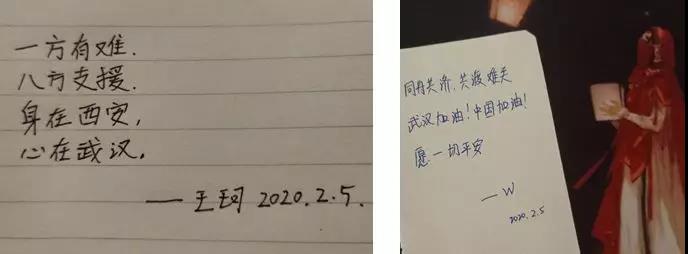 一方有难.
八方支援.
身在西安,
心在武汉.
— 王珂 2020.2.5.
同舟共济,共渡难关
武汉加油!中国加油!
愿一切平安
— W
2020.2.5